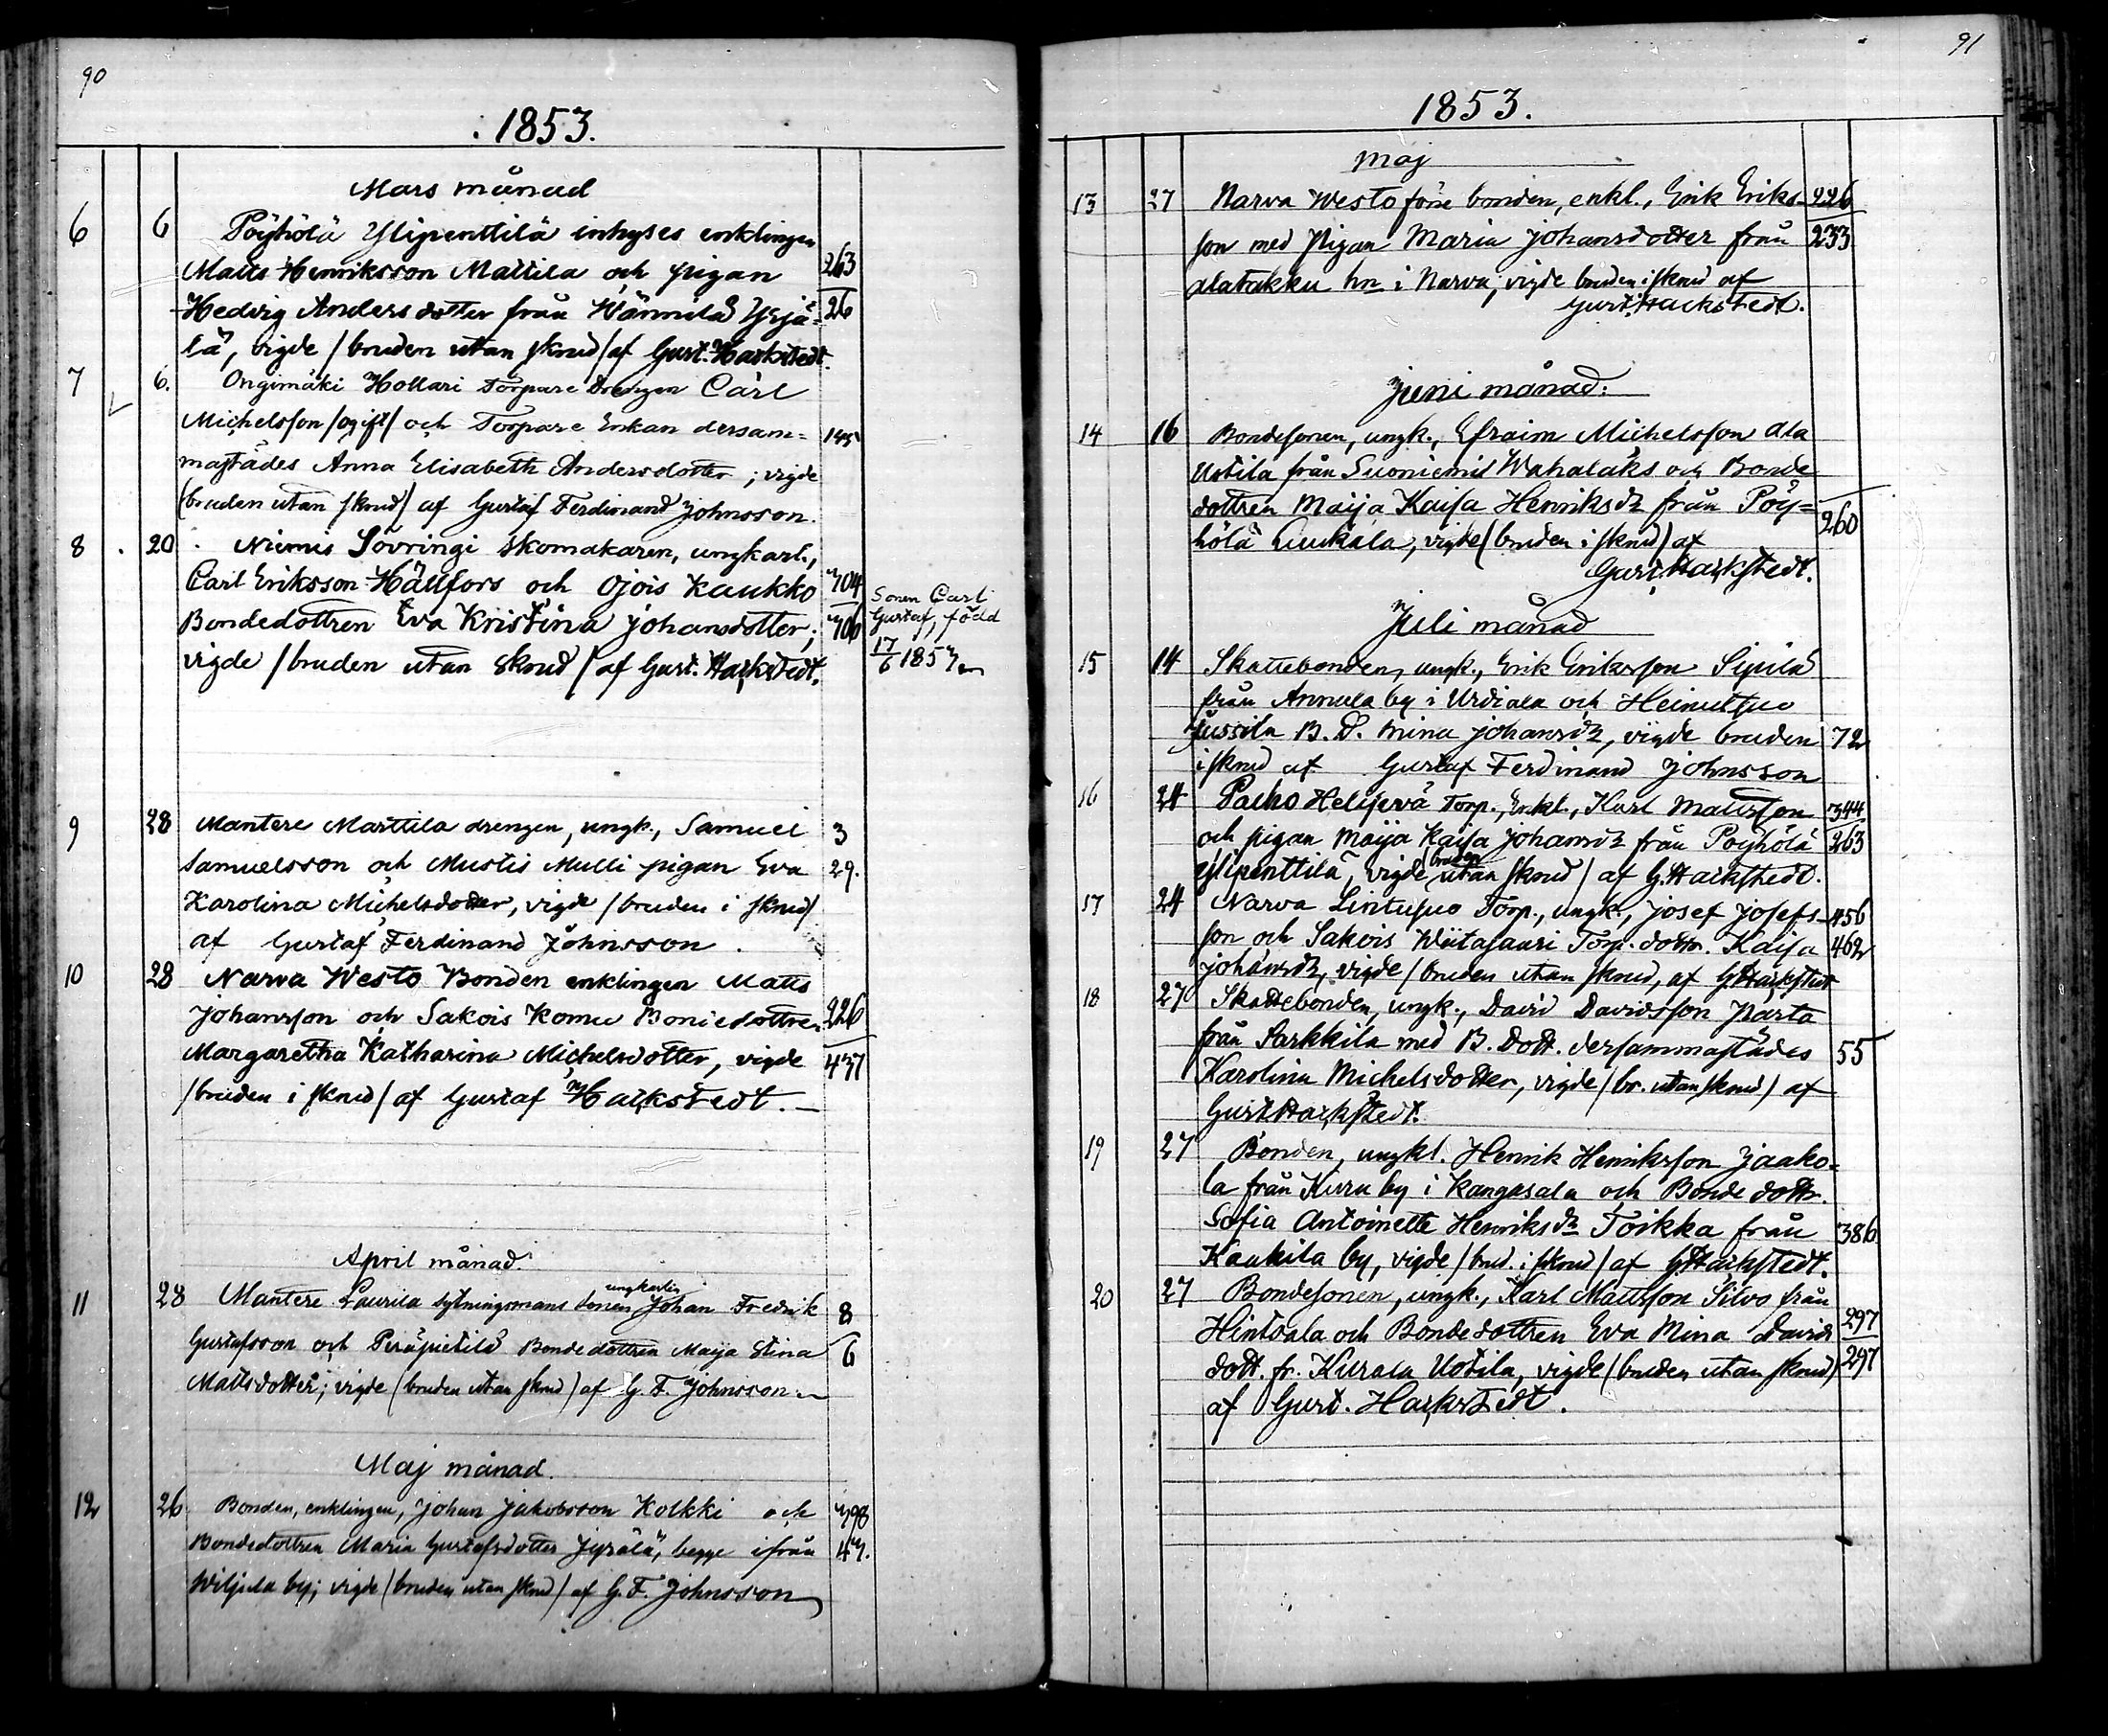 90
1853.
Mars månad
6 6 Pöyhölä Ylipenttilä inhyses enklingen
Matts Henriksson Mattila och pigan 263
Hedvig Andersdotter från Wännilä Yrjä= 26
lä, vigde /bruden utan skrud/ af Gust. Hackstedt.
7 6. Ongimäki Hollari Torpare drengen Carl
Michelsson /ogift/ och Torpare Enkan dersam= 145
mastädes Anna Elisabeth Andersdotter; vigde
(bruden utan skrud) af Gustaf Ferdinand Johnsson.
8 20 Niemis Sövringi skomakaren, ungkarl.,
Carl Eriksson Hällfors och Ojois Kaukko 304
Bondedottren Eva Kristina Johansdotter; 306
vigde /bruden utan skrud/ af Gust. Hackstedt.
Sonen Carl
Gustaf, född
17/6 1853
9 28 Mantere Marttila drengen, ungk., Samuel 3
Samuelsson och Mustis Mulli pigan Eva 29.
Karolina Michelsdotter, vigde /bruden i skrud/
af Gustaf Ferdinand Johnsson.
10 28 Narva Westo Bonden enklingen Matts
Johansson och Sakois Komu Bondedottren 226
Margaretha Katharina Michelsdotter, vigde 437
/bruden i skrud/ af Gustaf Hackstedt.
April månad.
ungkarlen
11 28 Mantere Laurila sytningsmans sonen Johan Fredrik 8
Gustafsson och Peräpietilä Bondedottren Maija Stina 6
Mattsdotter; vigde (bruden utan skrud) af G. F. Johnsson.
Maj månad.
12 26 Bonden, enklingen, Johan Jakobsson Kolkki och 398
Bondedottren Maria Gustafsdotter Jyrälä, begge ifrån 43.
Wiljula by; vigde (bruden utan skrud) af G. F. Johnsson
91
1853.
Maj
13 27 Narva Westo förre bonden, enkl., Erik Eriks- 226
son med Pigan Maria Johansdotter från 233
Alatakku hn i Narva, vigde bruden i skrud af
Gust. Hackstedt.
Juni månad.
14 16 Bondesonen, ungk., Efraim Michelsson Ala
Uotila från Suoniemi Wahalaks och Bonde
dottren Maija Kaisa Henriksdr från Pöy=
hölä Anukala, vigde (bruden i skrud) af 260
Gust. Hackstedt.
Juli månad
15 14 Skattebonden, ungk., Erik Eriksson Sipilä
från Annula by i Urdiala och Heinusuo
Jussila B. D. Mina Johansdr, vigde bruden 72
i skrud af Gustaf Ferdinand Johnsson
16 24 Palho Helijervä Torp., Enkl., Karl Mattsson 344
och pigan Maija Kaisa Johansdr från Pöyhölä 263
bruden
Ylipenttilä, vigde utan skrud/ af G. Hackstedt.
17 24 Narva Lintusuo Torp., ungk., Josef Josefs- 456
son och Sakois Wiitasaari Torp. dottr. Kaisa 462
Johansdr, vigde /bruden utan skrud, af G Hackstedt
18 27 Skattebonden, ungk., David Davidsson Parta
från Sarkkila med B. Dott. dersammastädes 55
Karolina Michelsdotter, vigde /br. utan skrud/ af
Gust. Hackstedt.
19 27 Bonden, ungkl. Henrik Henriksson Jaako=
la från Kuru by i Kangasala och Bonde dottr.
Sofia Antoinette Henriksdr Toikka från 386
Kaukila by, vigde /brud. i skrud/ af G. Hackstedt.
20 27 Bondesonen, ungk., Karl Mattsson Silvo från
Hintsala och Bondedottren Eva Mina Davids 297
dott. fr. Kurala Uotila, vigde (bruden utan skrud) 297
af Gust. Hackstedt.